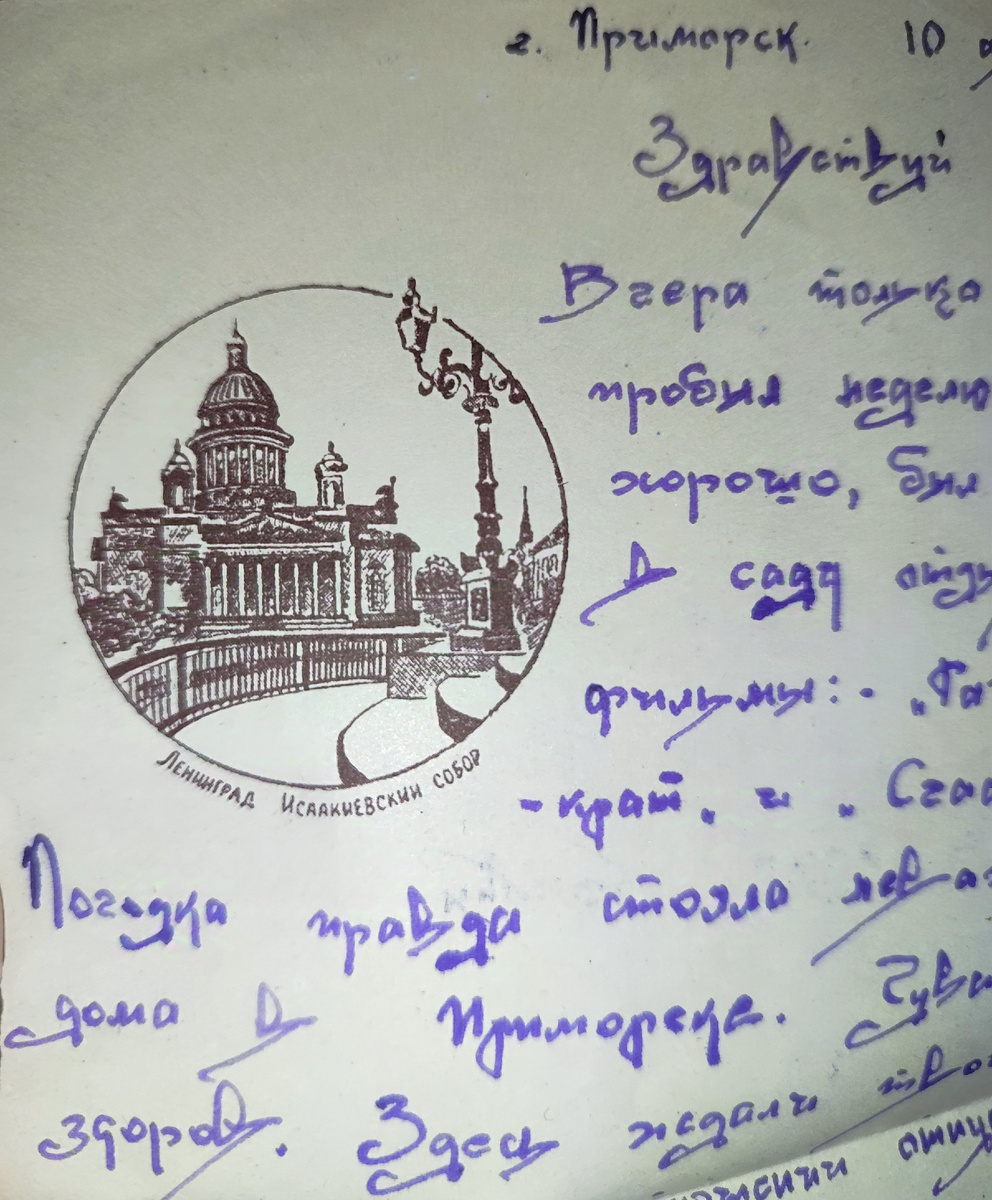 г. Приморск. 10
Здравствуй
Вчера только
пробыл неделю
хорошо, был
В саду отды
фильмы: - „Га
-крат" и „Счас
ЛЕНИНГРАД ИСААКИЕВСКИЙ СОБОР
Погодка правда стояла нева
дома в Приморске. Чувс
здоров. Здесь ждали тво